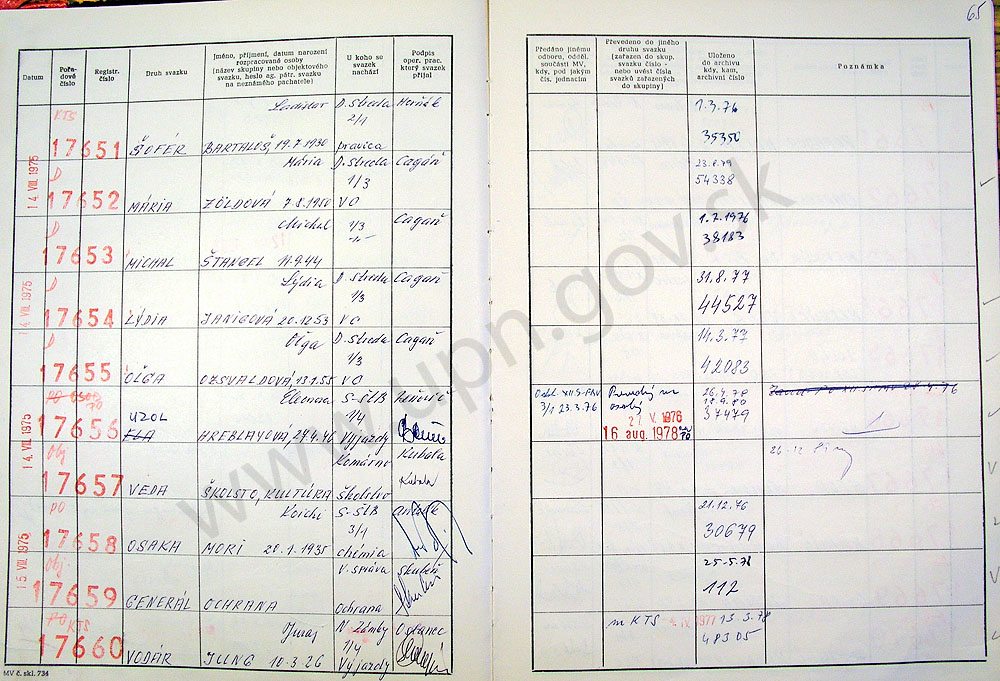 65
Datum
Pořadové číslo
Registr. číslo
Druh svazku
Jméno, příjmení, datum narození
rozpracované osoby
(název skupiny nebo objektového
svazku, heslo ag. pátr. svazku
na neznámého pachatele)
U koho se
svazek
nachází
Podpis
oper. prac.
který svazek
přijal
Předáno jinému
odboru, odděl.
součásti MV,
kdy, pod jakým
čís. jednacím
Převedeno do jiného
druhu svazku
(zařazen do skup.
svazku číslo -
nebo uvést čísla
svazků zařazených
do skupiny)
Uloženo
do archivu
kdy, kam,
archivní číslo
Poznámka
KTS Ladislav D. Streda
2/1
17651 ŠOFÉR BARTALOŠ, 19.7.1930 pravica
1.3.76
35350
14. VIII. 1975
D Mária D. Streda Cagáň
1/3
17652 MÁRIA ZÖLDOVÁ 7.8.1950 VO
23.8.79
54338
D Michal 1/3 Cagáň
17653 MICHAL ŠTANGEL 11.9.44
1.2.1976
38183
14. VIII. 1975
D Lýdia D. Streda Cagáň
1/3
17654 LÝDIA JANIGOVÁ 20.12.53 VO
31.8.77
44527
D Oľga D. Streda Cagáň
1/3
17655 OĽGA OZSVALDOVÁ, 13.1.55 VO
14.3.77
42083
14. VIII. 1975
PO Eleonora S-ŠtB
1/4
UZOL
17656 ELA HREBLAYOVÁ, 29.4.46 Výjazdy
3/1 23.3.76
osobný
2 V. 1976
16 aug. 1978
26.4.78
18.9.80
37479
Obj Komárno Kubala
17657 VEDA ŠKOLSTO, KULTÚRA školstvo Kubala
26-12
15. VIII. 1975
PO Koichi S-ŠtB
3/1
17658 OSAKA MORI 20.1.1935 chémia
21.12.76
30679
Obj. V. správa
17659 GENERÁL OCHRANA ochrana
25-5.78
112
PO KTS Juraj N. Zámky Ostanec
1/4
17660 VODÁR JUNG 10.3.26 Výjazdy
KTS 4. IV. 1977
13.3.78
48305
MV č. skl. 734
www.upn.gov.sk